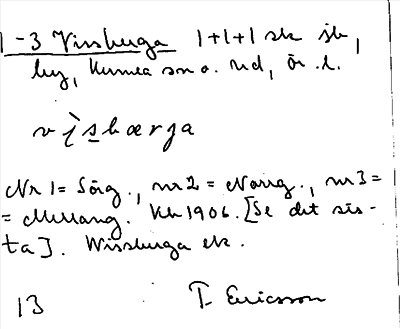 1-3 Vissberga 1+1+1 sk jb,
by, Kumla sn o. hd, Ör. l.
Nr 1 = Sörg., nr 2 = Norrg., nr 3 =
= Mellang. Kk 1906. [Se det sis-
ta]. Wissberga ek.
13 T. Ericsson